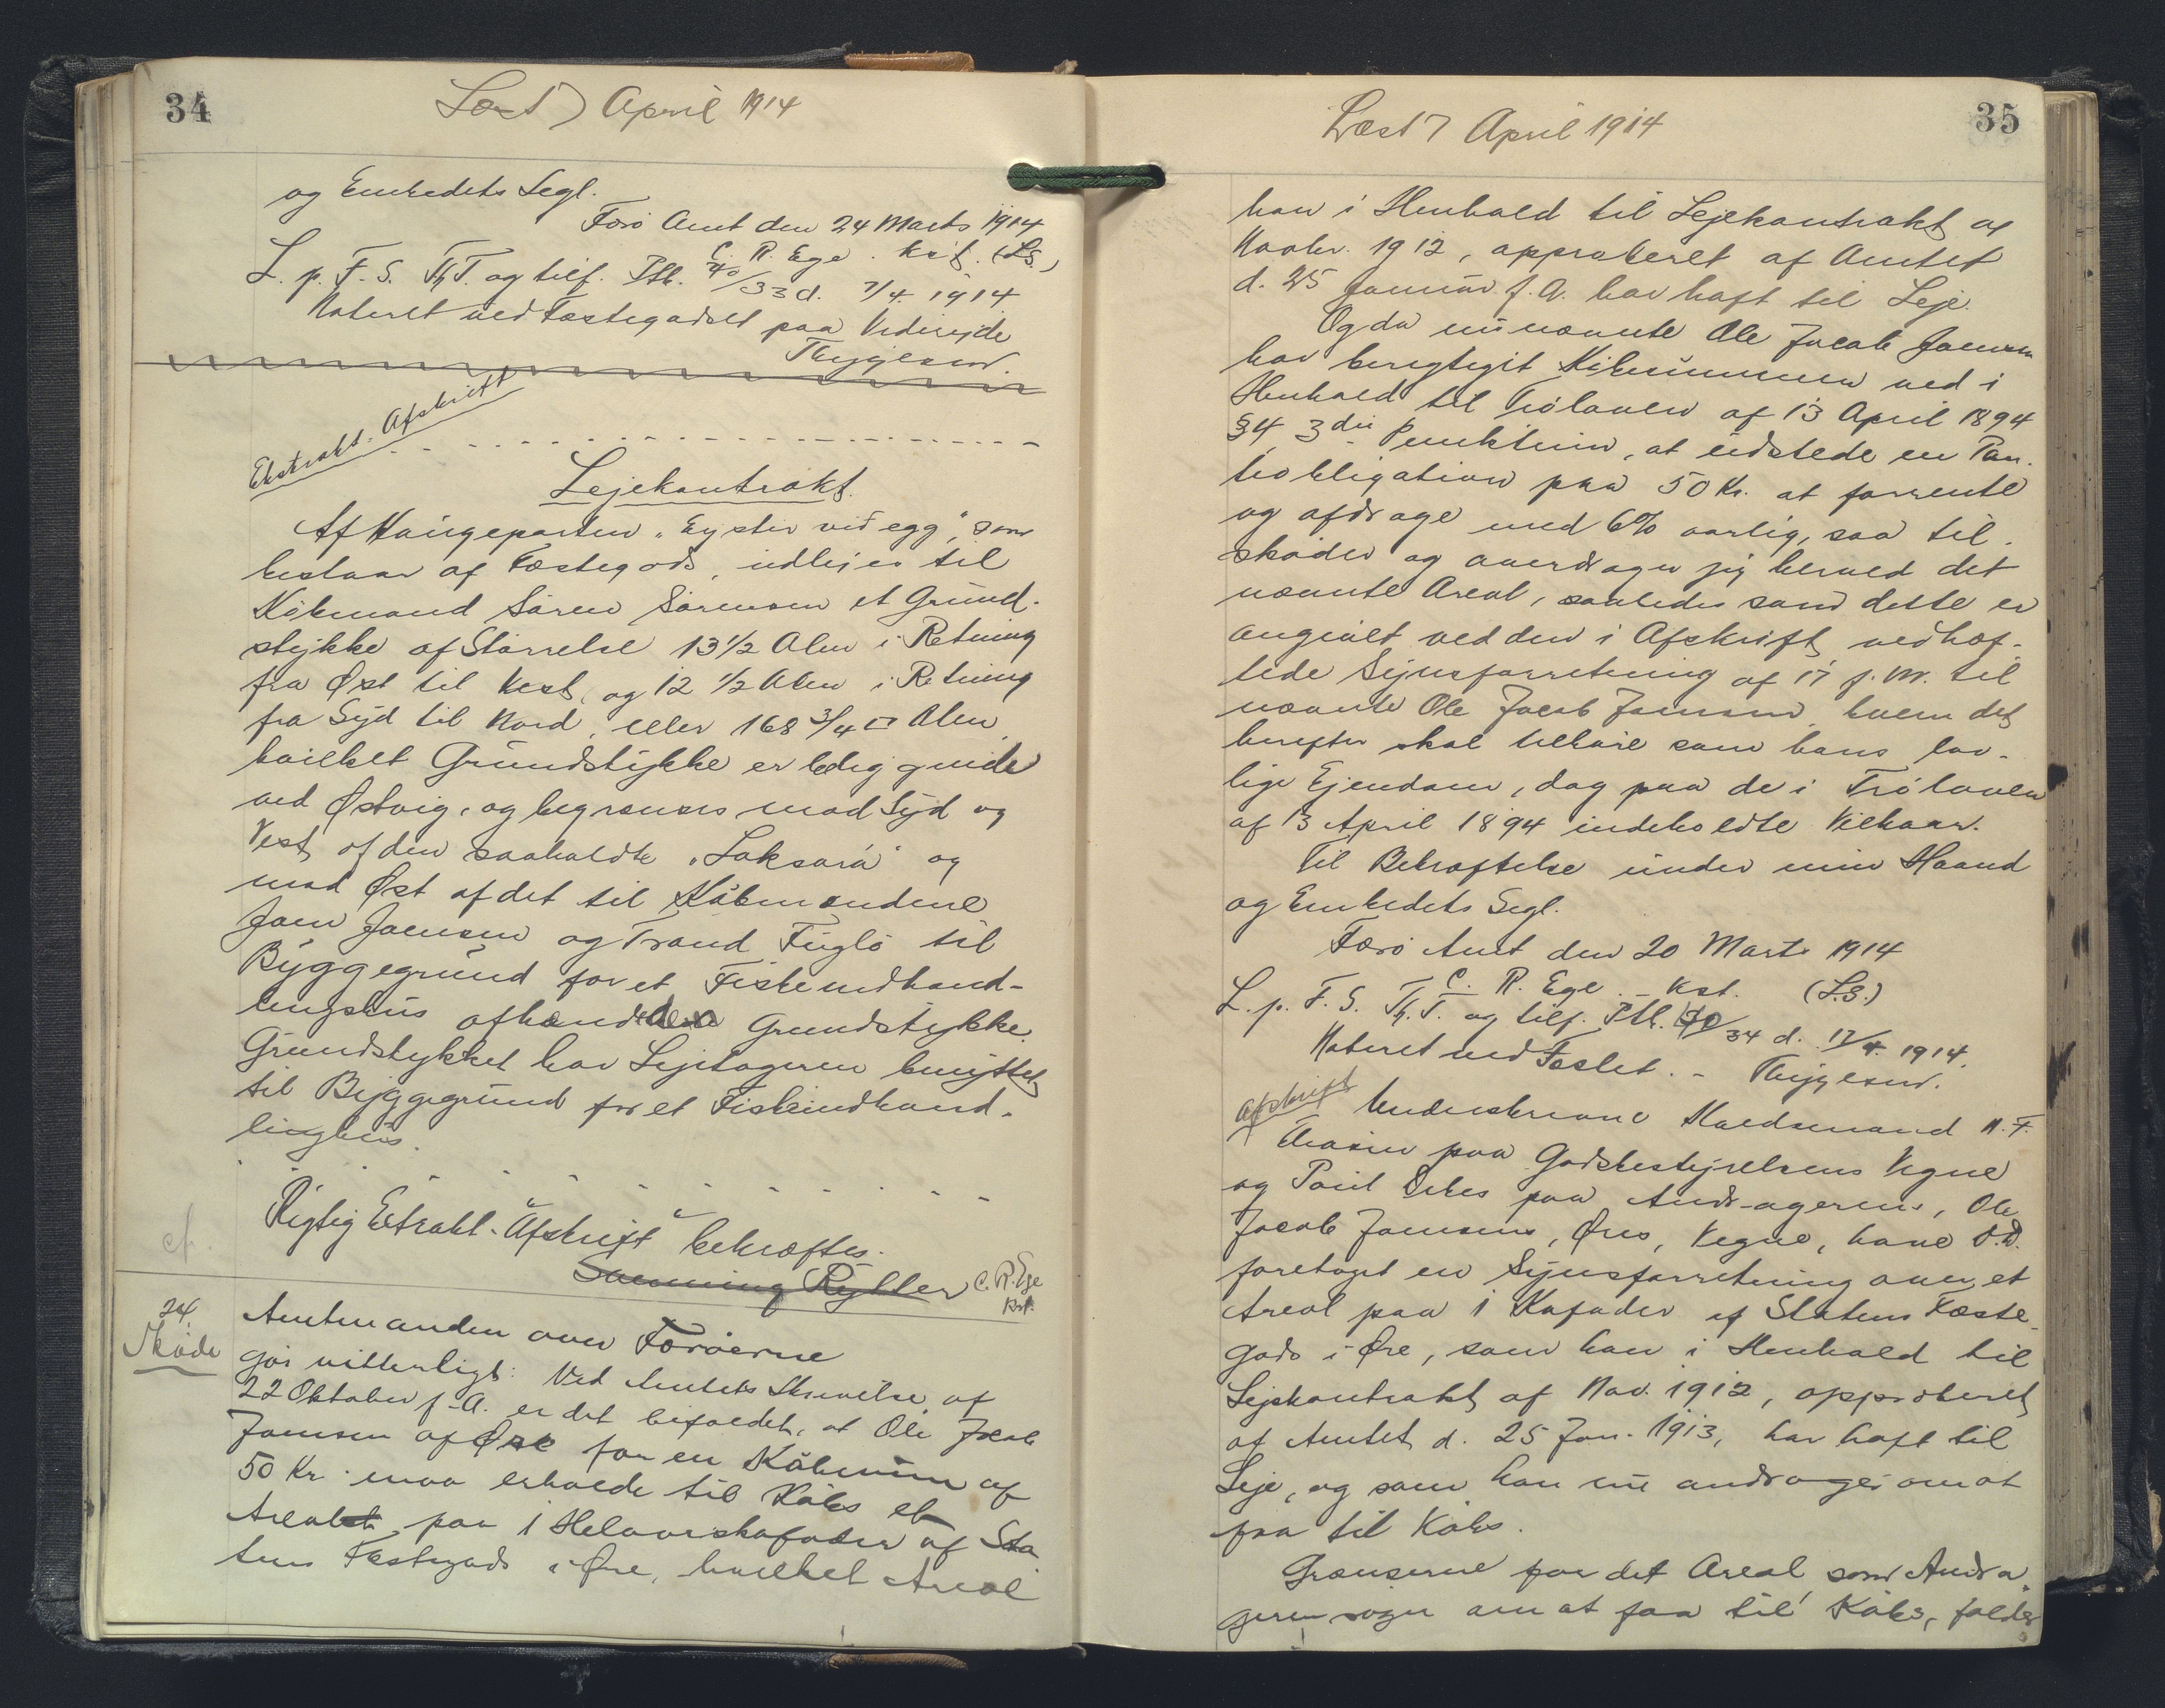 34
Læst 7 April 1914
og Embedets Segl.
Færø Amt den 24 Marts 1914
C. R. Ege. kst. (LS.)
L. p. F. S. Th. T. og tilf. Ptb. 40/33 d. 7/4. 1914
Noteret ved Fæstegodset paa Viderejde
Thygesen.
Ekstrakt-Afskrift
Lejekontrakt.
Af Haugeparten "Eystur við egg", som
bestaar af Fæstegods, udlejes til
Købmand Sören Sörensen et Grund-
stykke af Størrelse 13 1/2 Alen i Retning
fra Øst til Vest, og 12 1/2 Alen i Retning
fra Syd til Nord, eller 168 3/4 □ Alen,
hvilket Grundstykke er beliggende
ved Østvig, og begrænses mod Syd og
Vest af den saakaldte "Laksará" og
mod Øst af det til Købmændene
Joen Joensen og Trond Fuglö til
Byggegrund for et Fiskeindhand-
lingshus afhændede Grundstykke.
Grundstykket har Lejetageren benyttet
til Byggegrund for et Fiskeindhand-
linghus.
Rigtig Extrakt-Afskrift bekræftes.
Rytter C. R. Ege
kst.
24.
Skøde
Amtmanden over Færøerne
gør vitterligt: Ved Amtets Skrivelse af
22 Oktober f. A. er det bifaldet, at Ole Jacob
Joensen af Øre for en Købesum af
50 Kr. maa erholde til Købs et
Areal paa 1 Helaarskofoder af Sta
tens Fæstegods i Øre, hvilket Areal
35
Læst 7 April 1914
han i Henhold til Lejekontrakt af
Novbr. 1912, approberet af Amtet
d. 25 Januar f. A. har haft til Leje.
Og da nu nævnte Ole Jacob Joensen
har berigtiget Købesummen ved i
Henhold til Trøloven af 13 April 1894
§ 4, 3die Punktum, at udstede en Pan-
teobligation paa 50 Kr. at forrente
og afdrage med 6% aarlig, saa til-
skøder og overdrager jeg herved det
nævnte Areal, saaledes som dette er
angivet ved den i Afskrift vedhæf-
tede Synsforretning af 17 f. M. til
nævnte Ole Jacob Joensen, hvem det
herefter skal tilhøre som hans lov-
lige Ejendom, dog paa de i Trøloven
af 13 April 1894 indeholdte Vilkaar.
Til Bekræftelse under min Haand
og Embedets Segl.
Færø Amt den 20 Marts 1914
C. R. Ege. - kst. (L.S.)
L. p. F. S. Th. T. og tilf. Ptb. 40/34 d. 17/4. 1914.
Noteret ved Fæstet. - Thygesen.
Afskrift
Underskrevne Haldsmand N. F.
paa Godsbestyrelsens Vegne
og Poul paa Andragerens, Ole
Jacob Joensens, Øres, Vegne, have D.D.
foretaget en Synsforretning over et
Areal paa 1 Kofoder af Statens Fæste-
gods i Øre, som han i Henhold til
Lejekontrakt af Nov. 1912, approberet
af Amtet d. 25 Jan. 1913, har haft til
Leje, og som han nu andrager om at
faa til Købs.
Grænserne for det Areal som Andra
geren søger om at faa til Købs, falder